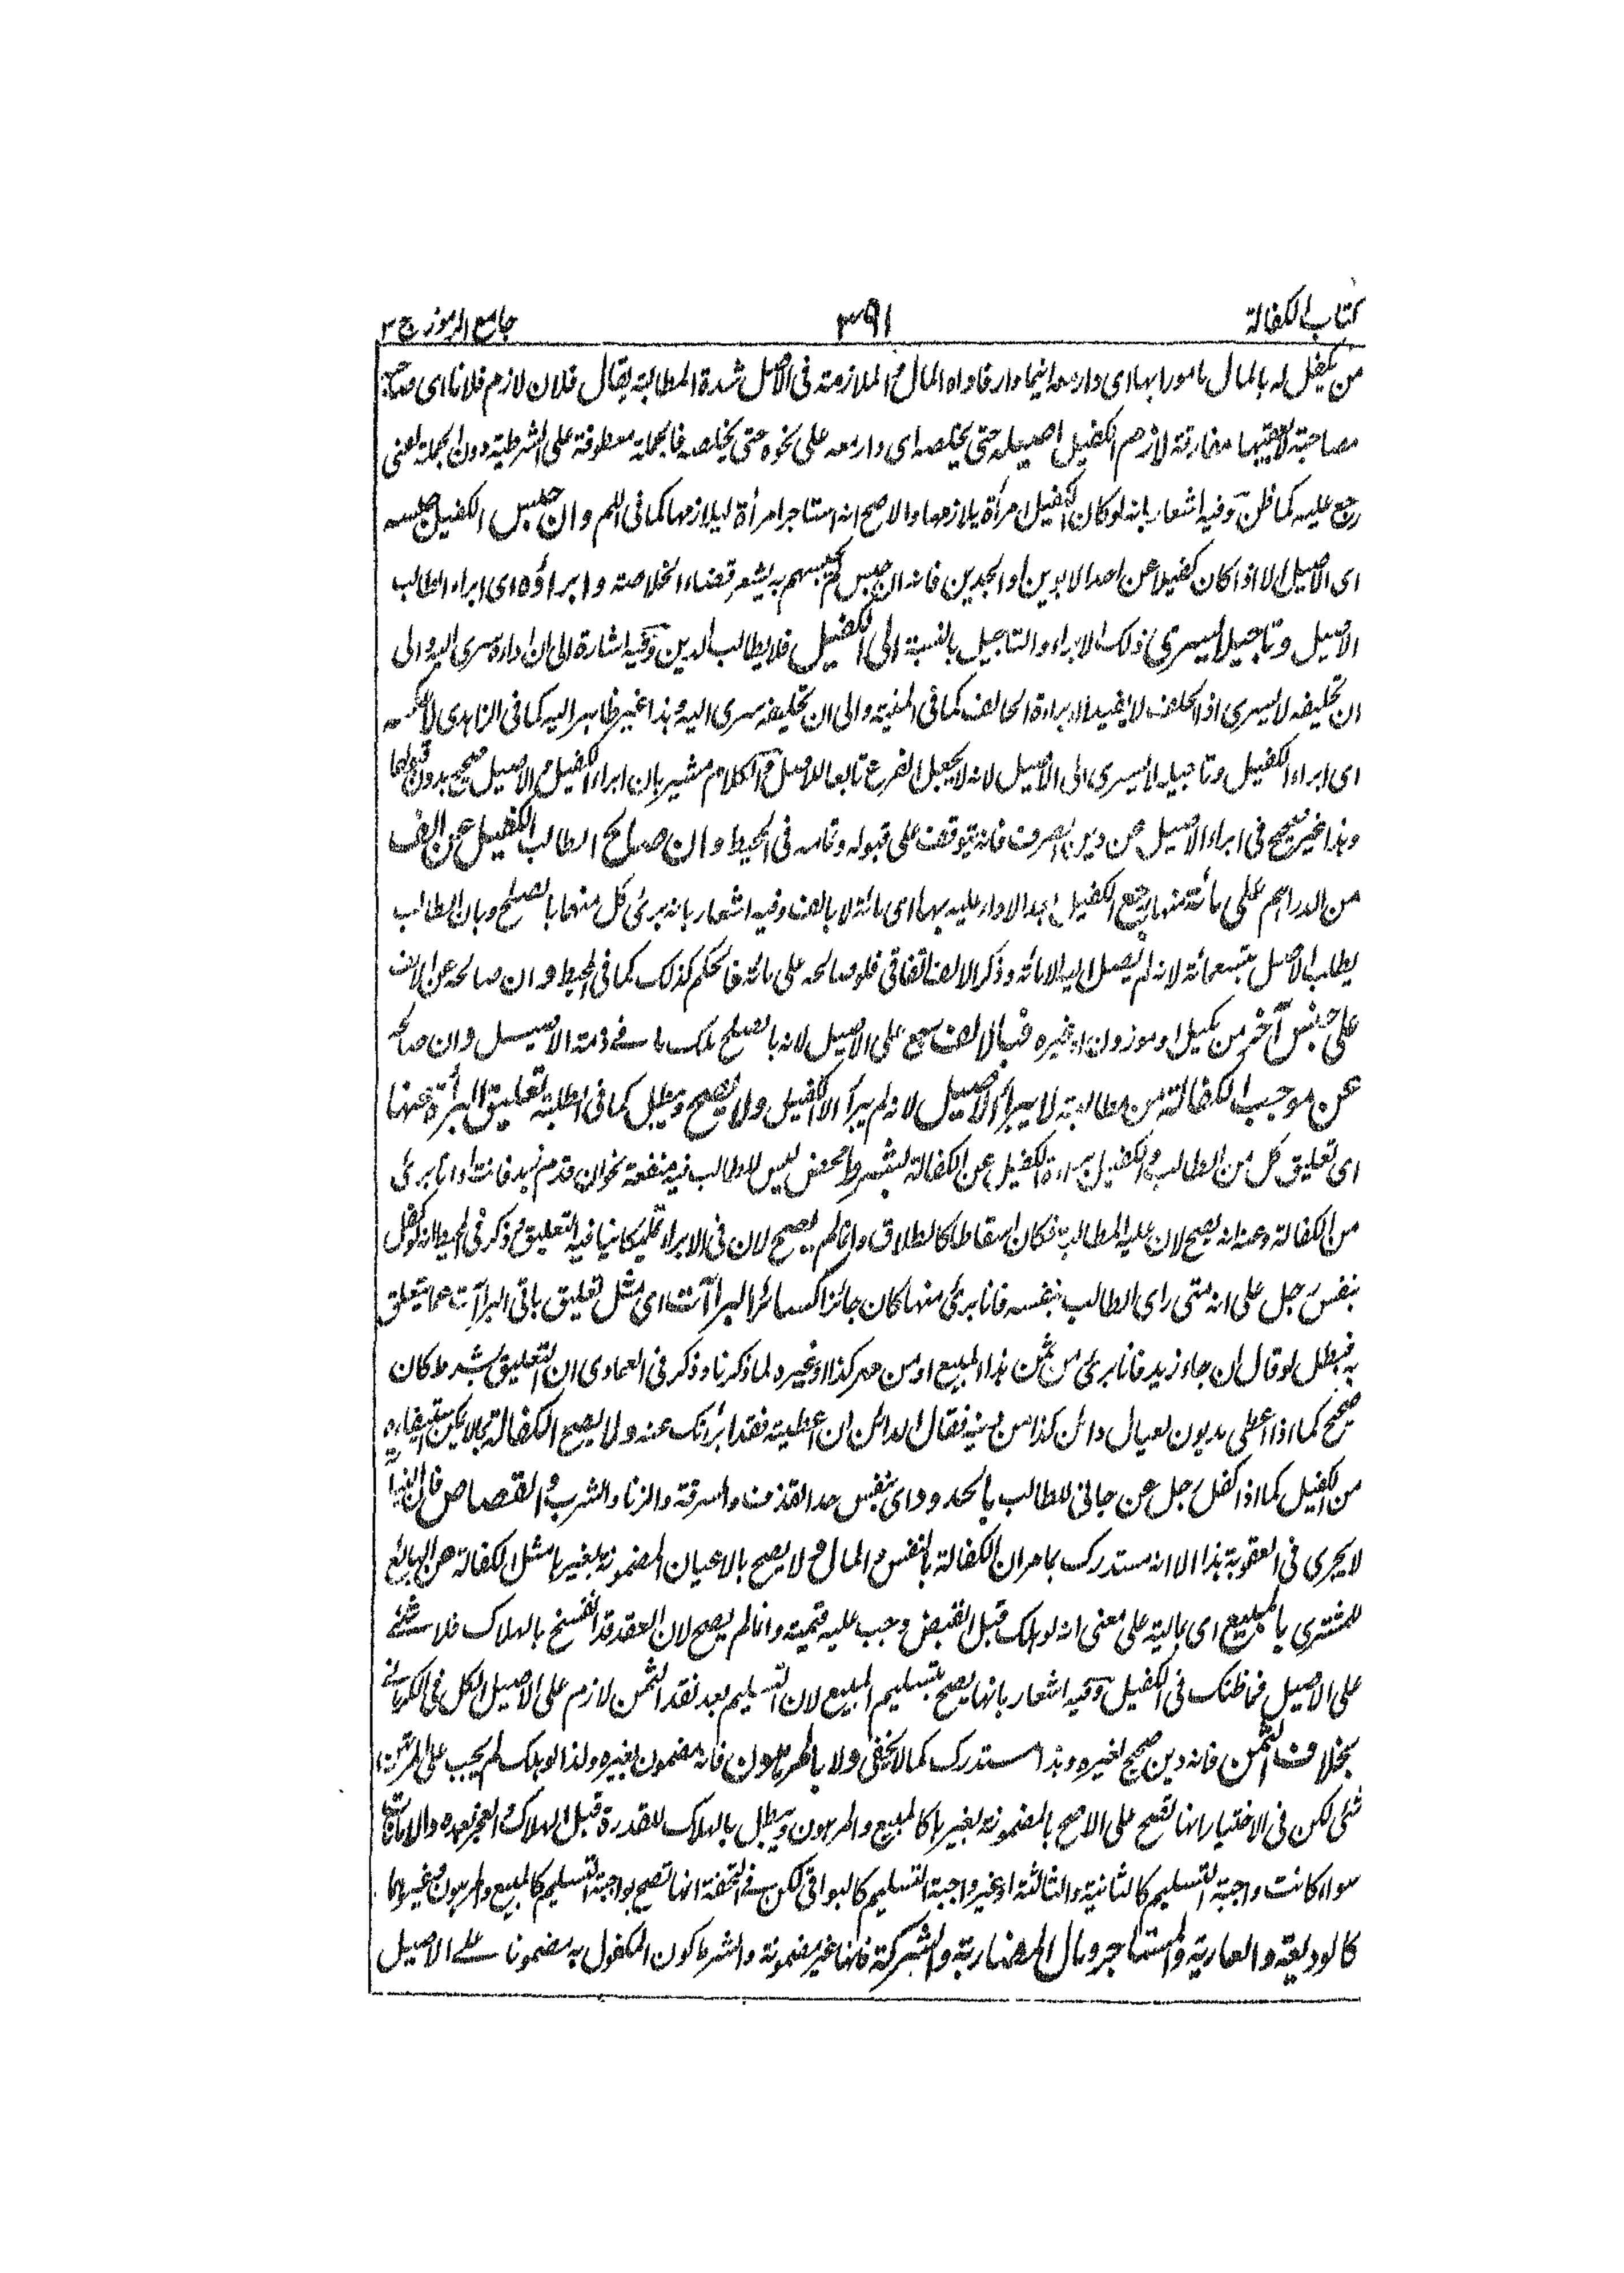 كتاب الكفالة ٣٩١ جامع الرموز ج ٣
من يكفل له بالمال مامورا بها اى دار معه اينما دار فاداه المال و الملازمة فى الاصل شدة المطالبة يقال فلان لازم فلانا اى صاحبه
مصاحبة لا يعقبها مفارقة لازم الكفيل اصيله حتى يخلصه اى دار معه على نحوه حتى يخلصه فالجملة معطوفة على الشرطية دون الجملة لمعنى
رجع عليه كما ظن وفيه اشعار بانه لو كان الكفيل امرأة يلازمها والاصح انه استاجر امرأة ليلازمها كما فى وان حبس الكفيل حبسه
اى الاصيل الا اذا كان كفيلا عن احد الابوين او الجدين فانه ان حبس لم يحبسهم به يشعر قضاء الخلاصة و ابراؤه اى ابراء الطالب
الاصيل و تاجيله يسرى ذلك الابراء والتاجيل بالنسبة الى الكفيل فلا يطالب الدين وفيه اشارة الى ان اداءه سرى اليه والى
ان تحليفه لا يسرى اذ الحلف لا يفيد الا براءة الحالف كما فى المنية والى ان تحليفه سرى اليه وهذا غير ظاهر اليه كما فى الزاهدى لا عكسه
اى ابراء الكفيل وتاجيله لا يسرى الى الاصيل لانه لا يجعل الفرع تابعا للاصل و الكلام مشير بان ابراء الكفيل و الاصيل صحيح بدون قبولهما
وهذا غير صحيح فى ابراء الاصيل من دين الصرف فانه يتوقف على قبوله وتمامه فى المحيط وان صالح الطالب الكفيل عن الف
من الدراهم على مائة منها رجع الكفيل بعد الاداء عليه بها اى مائة لا بالف وفيه اشعار بانه برئ كل منهما بالصلح وبان الطالب
يطلب الاصيل بتسعمائة لانه لم يصل اليه الا مائة وذكر الالف اتفاقى فلو صالحه على مائة فالحكم كذلك كما فى المحيط و ان صالحه عن الالف
على جنس آخر من مكيل او موزون او غيره فبالالف رجع على الاصيل لانه بالصلح ملك ما فى ذمة الاصيل وان صالحه
عن موجب الكفالة من مطالبة لا يبرأ الاصيل لانه لم يبرأ الا الكفيل ولا يصح ويبطل كما فى الطلبة تعليق البرأة عنها
اى تعليق كل من الطالب و الكفيل براءة الكفيل عن الكفالة بشرط محض ليس للطالب فيه منفعة نحو ان قدم زيد فانت او انا برئ
من الكفالة وعنه انه يصح لان عليه المطالبة فكان اسقاطا كالطلاق وانما لم يصح لان فى الابراء تمليكا ينافيه التعليق و ذكر فى المحيط انه لو كفل
بنفس رجل على انه متى راى الطالب بنفسه فانا برئ منها كان جائزا كسائر البراآت اى مثل تعليق باقى البراآت عما يتعلق
به فيبطل لو قال ان جاء زيد فانا برئ من ثمن هذا المبيع او من مهر كذا او غيره لما ذكرنا و ذكر فى العمادى ان التعليق بشرط كان
صحيح كما اذا اعطى مديون لعيال دائن كذا من دينه فقال الدائن ان اعطيته فقد ابرأتك عنه ولا يصح الكفالة بما لا يمكن استيفاؤه
من الكفيل كما اذا كفل رجل عن جانى للطالب بالحدود اى بنفس حد القذف والسرقة والزنا والشرب و القصاص فان النيابة
لا يجرى فى العقوبة هذا الا انه مستدرك بما مر ان الكفالة بالنفس و المال و لا يصح بالاعيان المضمونة بغيرها مثل الكفالة عن البائع
للمشترى بالمبيع اى بماليته على معنى انه لو هلك قبل القبض وجب عليه قيمته وانما لم يصح لان العقد قد انفسخ بالهلاك فلا شئ
على الاصيل فما ظنك فى الكفيل وفيه اشعار بانها يصح بتسليم المبيع لان التسليم بعد نقد الثمن لازم على الاصيل الكل فى الكرمانى
بخلاف الثمن فانه دين صحيح لغيره وهذا مستدرك كما لا يخفى ولا بالمرهون فانه مضمون بغيره ولذا لو هلك لم يجب على المرتهن
شئ لكن فى الاختيار انها تصح على الاصح بالمضمونة بغيرها كالمبيع والمرهون ويبطل بالهلاك للقدرة قبل الهلاك و العجز بعده والامانات
سواء كانت واجبة التسليم كالثانية والثالثة او غير واجبة التسليم كالبواقى لكن فى التحفة انها تصح بواجبة التسليم كالمبيع والمرهون وغيرهما
كالوديعة والعارية والمستاجر ومال المضاربة والشركة فانها غير مضمونة والشرط كون المكفول به مضمونا على الاصيل